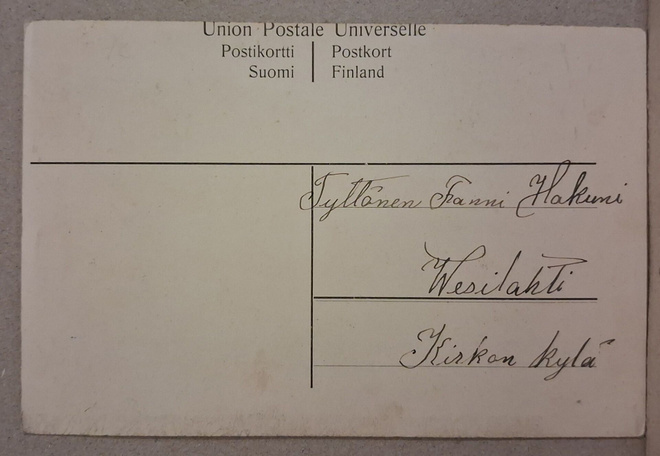 Union Postale Universelle
Postikortti Postkort
Suomi Finland
Tyttönen Fanni Hakuni
Wesilahti
Kirkon kylä